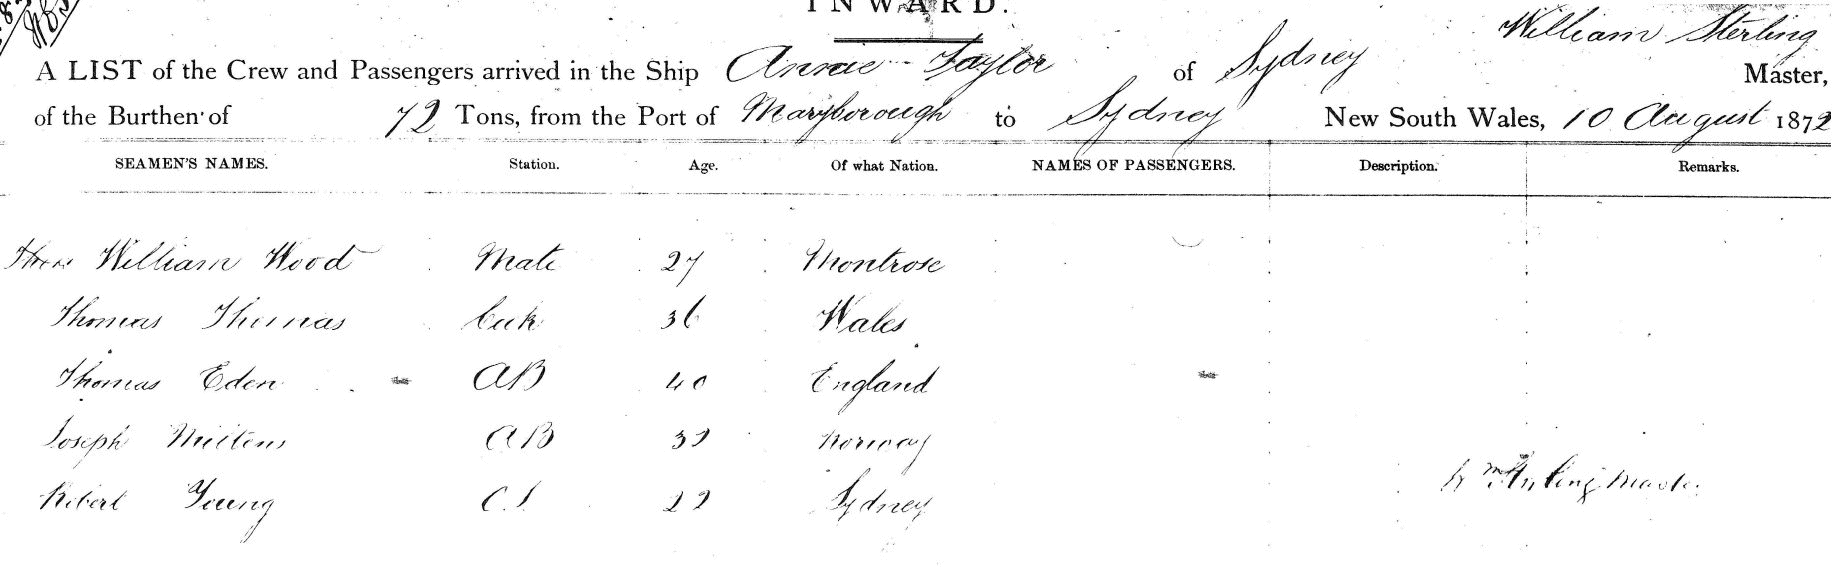 INWARD.
William Sterling
A LIST of the Crew and Passengers arrived in the Ship Annie Taylor of Sydney Master,
of the Burthen of 72 Tons, from the Port of Maryborough to Sydney New South Wales, 10 August 1872
SEAMEN'S NAMES. Station. Age. Of what Nation. NAMES OF PASSENGERS. Description. Remarks.
William Wood Mate 27 Montrose
Thomas Thomas Cook 36 Wales
Thomas Eden AB 40 England
Joseph AB 32 Norway
Robert Young 22 Sydney
Wm Sterling Master